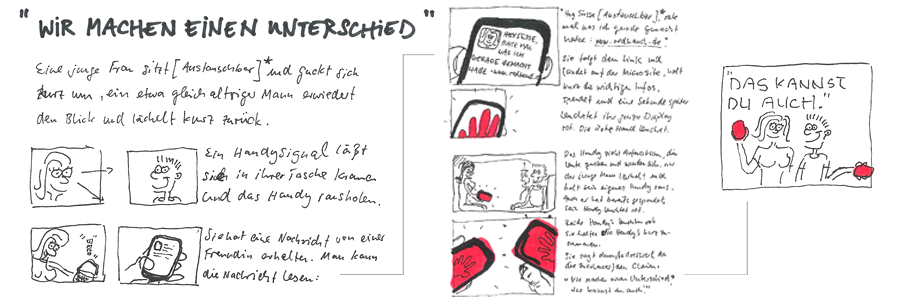 "WIR MACHEN EINEN UNTERSCHIED"
Eine junge Frau sitzt [Austauschbar]* und guckt sich
kurz um, ein etwa gleichaltriger Mann erwiedert
den Blick und lächelt kurz zurück.
Ein Handysignal läßt
sie in ihrer Tasche kramen
und das Handy rausholen.
Sie hat eine Nachricht von einer
Freundin erhalten. Man kann
die Nachricht lesen:
HEY SÜSSE,
RATE MAL
WAS ICH
GERADE GEMACHT
HABE
"Hey Süsse [Austauschbar]*, rate
mal was ich gerade gemacht
habe:
Sie folgt dem Link und
landet auf der Microsite, holt
kurz die wichtigen Infos,
spendet und eine Sekunde später
leuchtet ihr ganzes Display
rot. Die rote Hand leuchtet.
Das Handy
Leute gucken und
junge Mann lächelt und
holt sein eigenes Handy raus.
Auch er hat bereits gespendet,
sein Handy leuchtet rot.
Beide Handy's leuchten rot
sie halten die Handy's kurz zu-
sammen.
Sie sagt
Claim:
"Wir machen einen Unterschied,
das kannst du auch."
"DAS KANNST
DU AUCH."